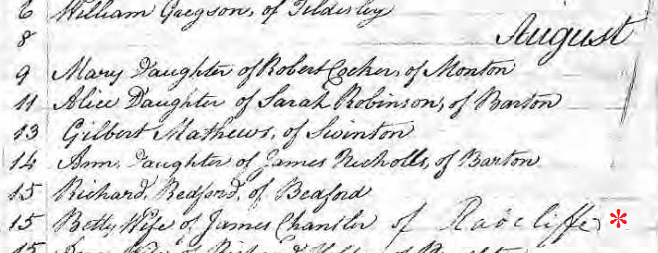 6 William Gregson, of Tildesley
August
8
9 Mary Daughter of Robert Cocker, of Monton
11 Alice Daughter of Sarah Robinson, of Barton
13 Gilbert Mathews, of Swinton
14 Ann, Daughter of James Nicholls, of Barton
15 Richard, Bedford, of Bedford
15 Betty Wife of James Chantler of Radcliffe *
15 Wife of